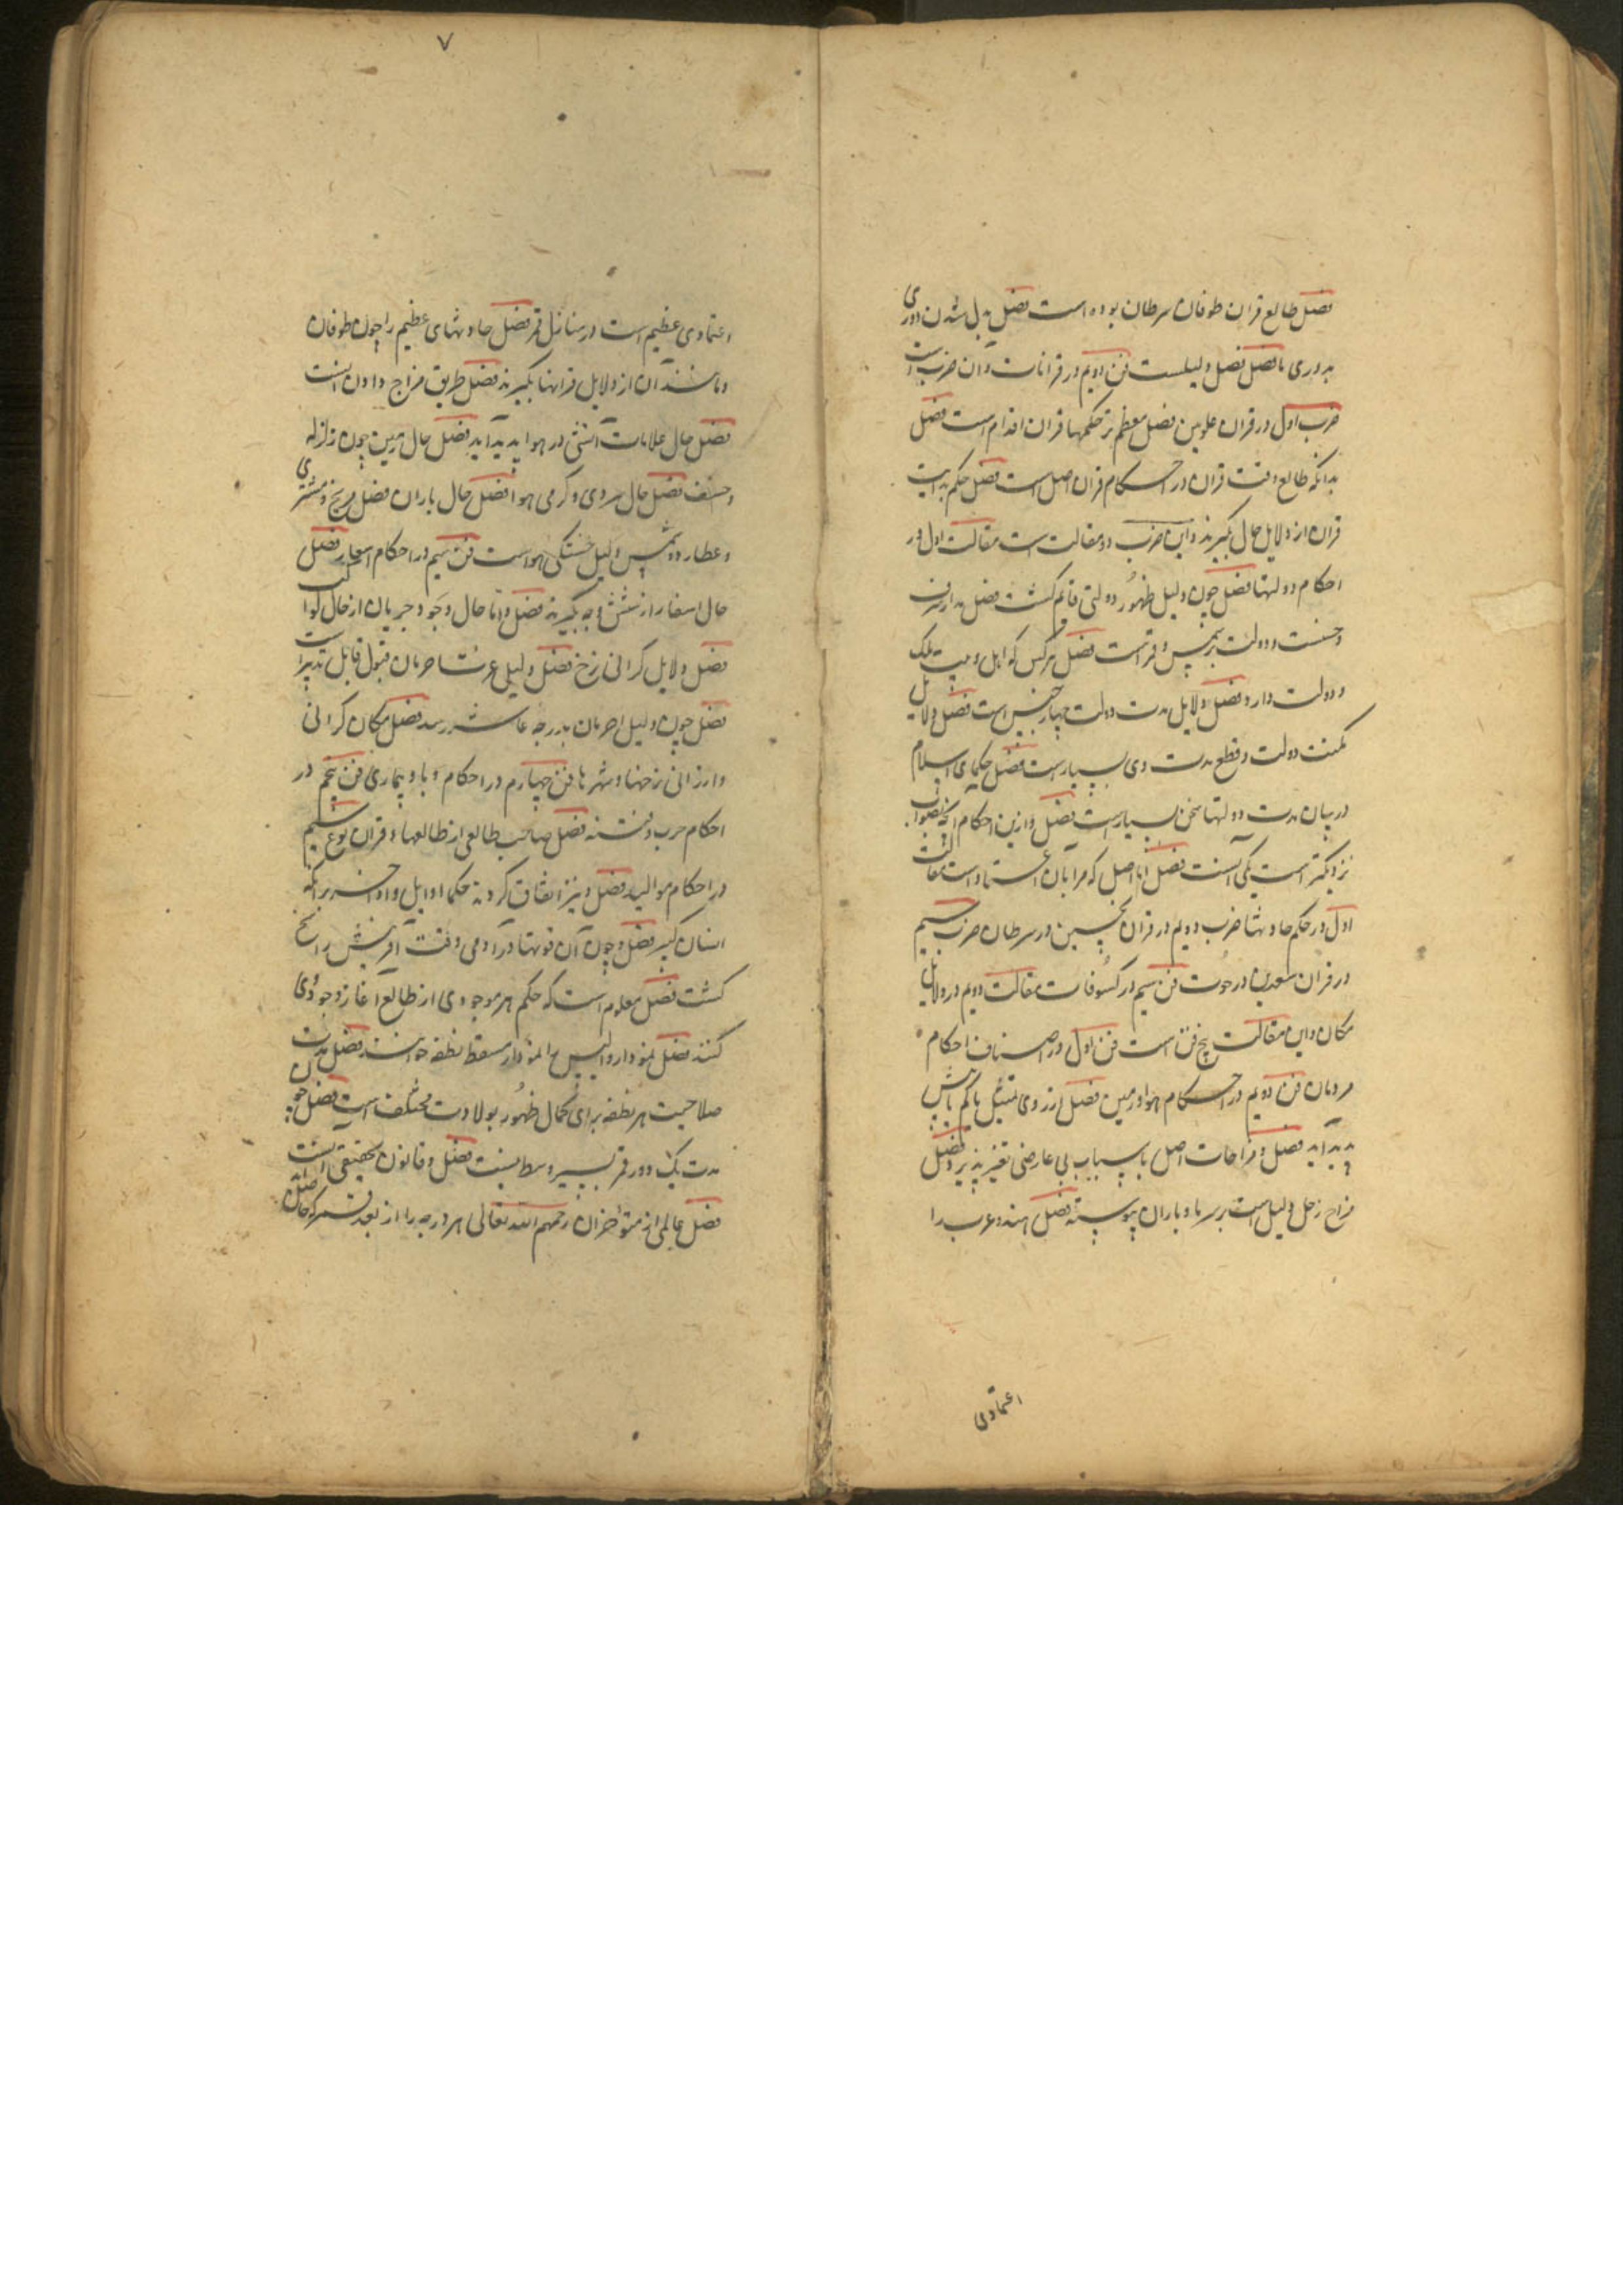 فصل طالع قران طوفان سرطان بوده است فصل بدل شدن دوری
بدوری با فصل فصل دلیلست فن دویم در قرانات و آن ضرب است
ضرب اول در قران علویین فصل معظم تر حکمها قران اقدام است فصل
بدانکه طالع وقت قران در احکام قران اصل است فصل حکم بدایت
قران از دلایل حال گیرند و این ضرب دو مقالت است مقالت اول در
احکام دولتها فصل چون دلیل ظهور دولتی قائم کشت فصل مدار شرف
و خسّت و دولت بر شمس و قمر است فصل هرکس که اهل و میت ملک
و دولت دارد فصل دلایل مدت دولت چهار جنس است فصل دلایل
کمیت دولت و قطع مدت وی بسیار است فصل حکمای اسلام
در بیان مدت دولتها سخن بسیار است فصل و ازین احکام آنچه بصواب
نزدیکتر است یکی آنست فصل اما اصل که مرا بان اعتماد است مقالت
اول در حکم حادثها ضرب دویم در قران نحسین در سرطان ضرب سیم
در قران سعدین در حوت فن سیم در کسوفات مقالت دویم در دلایل
مکان و این مقالت پنج فن است فن اول در اصناف احکام
مردمان فن دویم در احکام هوا و زمین فصل از روی تمثیل باکم بابیش
پدید آید فصل و مزاجات اصل باسباب بی عارضی تغیر پذیرد فصل
مزاج زحل دلیل است بر سرما و باران پیوسته فصل هند و عرب را
اعتمادی
۷
اعتمادی عظیم است در منازل قمر فصل حادثهای عظیم را چون طوفان
و مانند آن از دلایل قرانها بگیرند فصل طریق مزاج دادن اینست
فصل حال علامات آتشی در هوا پدید آید فصل حال زمین چون زلزله
و خسف فصل حال سردی و گرمی هوا فصل حال باران فصل مریخ و مشتری
و عطارد و شمس دلیل خشکی هواست فن سیم در احکام اسعار فصل
حال اسعار از شش وجه بگیرند فصل و اما حال وجود و جریان از حال کواکب
فصل دلایل کرانی نرخ فصل دلیلی عزت احرمان قبول قابل تدبیر است
فصل چون دلیل احرمان بدرجه عاشر رسد فصل مکان کرانی
و ارزانی نرخها و شهرها فن چهارم در احکام وبا و بیماری فن پنجم در
احکام حرب و فتنه فصل صاحب طالعی از طالعها و قران نوع ششم
در احکام موالید فصل و نیز اتفاق کردند حکما اوایل و اواخر برآنکه
انسان کبیر فصل و چون آن قوتها در آدمی وقت آفرینش راسخ
کشت فصل معلوم است که حکم هر موجودی از طالع آغاز وجود وی
کنند فصل نمودار والیس المنودار مسقط نطفه خوانند فصل مدت
صلاحیت هر نطفه برای کمال ظهور بولادت مختلف است فصل چون
مدت یک دور قمر بسیر وسط بیست فصل و قانون حقیقی اینست
فصل عالمی از متوأخران رحمهم الله تعالی هر درجه را از بعد قمر که حاصل